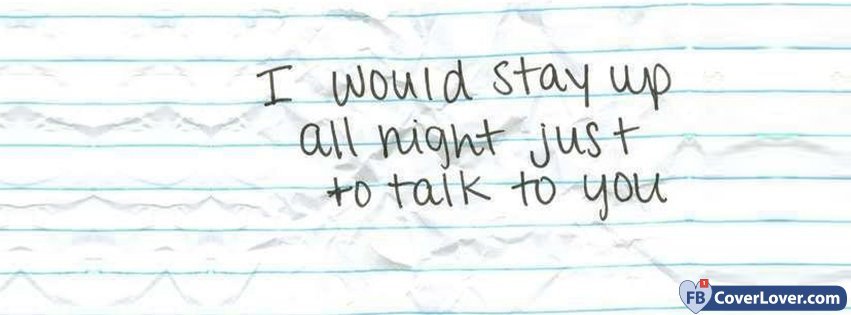 I would stay up
all night just
to talk to you
FB 1 CoverLover.com